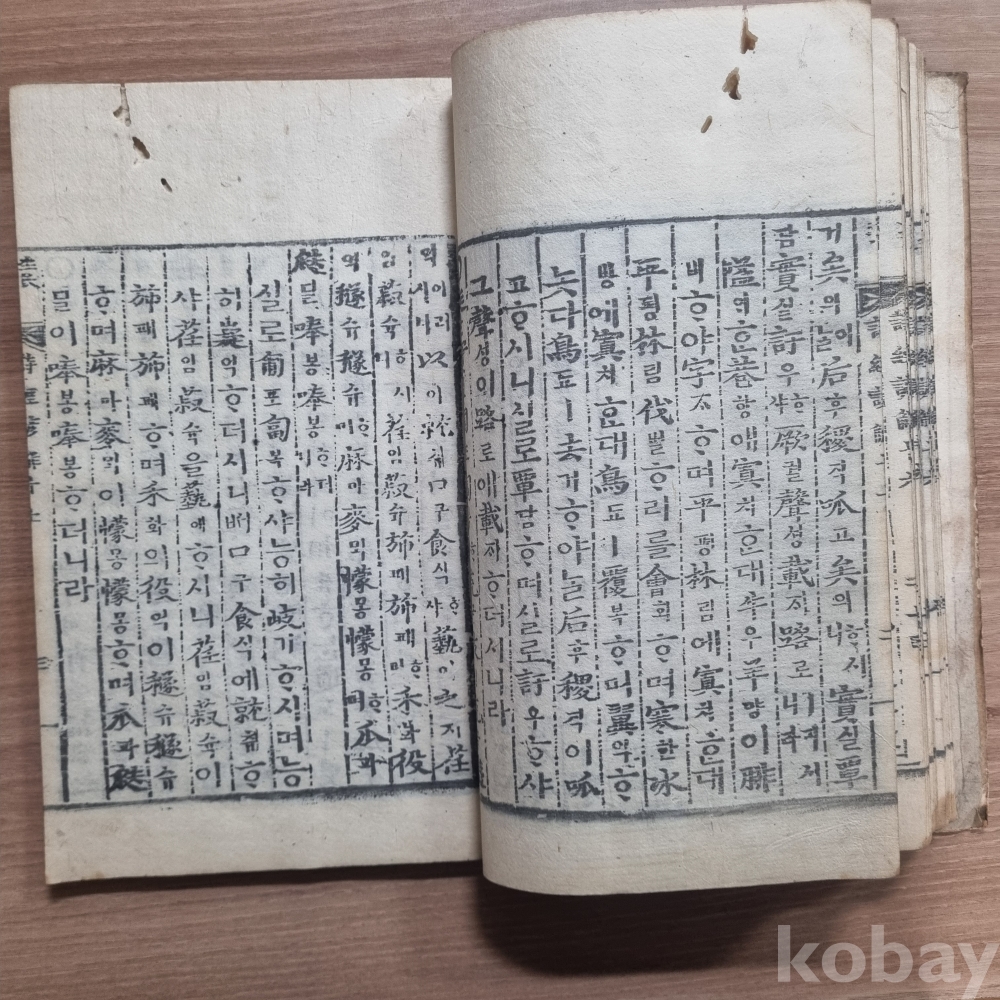 거矣의ᄂᆞᆯ이后후稷직呱고矣의ᄒᆞ시니實실覃
담實실訏우ᄒᆞ샤厥궐聲셩載ᄌᆡ路로
隘익ᄒᆞᆫ巷항애寘치ᄒᆞᆫ대牛우羊양이腓
비ᄒᆞ야字ᄌᆞᄒᆞ며平평林림에寘치ᄒᆞᆫ대
平평林림伐벌ᄒᆞ리를會회ᄒᆞ며寒한冰
빙에寘치ᄒᆞᆫ대鳥됴ㅣ覆복ᄒᆞ며翼익ᄒᆞ
ᄂᆞᆺ다鳥됴ㅣ去거ᄒᆞ야ᄂᆞᆯ后후稷직이呱
고ᄒᆞ시니실로覃담ᄒᆞ며시르로訏우ᄒᆞ샤
그聲셩이路로애載ᄌᆡᄒᆞ더시니라
억이러시니以이就취口구食식ᄒᆞ샤蓺예之지荏
임菽슉ᄒᆞ시니荏임菽슉旆패旆패ᄒᆞ며禾화役
역穟슈穟슈ᄒᆞ며麻마麥ᄆᆡᆨ幪몽幪몽ᄒᆞ며瓜과
瓞딜唪봉唪봉ᄒᆞ더니라
실로匍포匐복ᄒᆞ샤능히岐기ᄒᆞ시며능
히嶷억ᄒᆞ더시니ᄡᅥ口구食식에就취ᄒᆞ
샤荏임菽슉을蓺예ᄒᆞ시니荏임菽슉이
旆패旆패ᄒᆞ며禾화의役역이穟슈穟슈
ᄒᆞ며麻마麥ᄆᆡᆨ이幪몽幪몽ᄒᆞ며瓜과瓞
딜이唪봉唪봉ᄒᆞ더니라
kobay